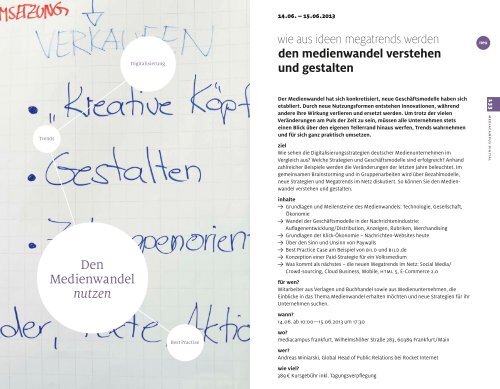 MSETZUNG,
VERKAUFEN
Digitalisierung
• „Kreative Köpf
Trends
• Gestalten
ppenorien
Den
Medienwandel
nutzen
der,
te Aktio
Best Practice
14.06. – 15.06.2013
wie aus ideen megatrends werden
den medienwandel verstehen
und gestalten
neu
Der Medienwandel hat sich konkretisiert, neue Geschäftsmodelle haben sich
etabliert. Durch neue Nutzungsformen entstehen Innovationen, während
andere ihre Wirkung verlieren und ersetzt werden. Um trotz der vielen
Veränderungen am Puls der Zeit zu sein, müssen alle Unternehmen stets
einen Blick über den eigenen Tellerrand hinaus werfen, Trends wahrnehmen
und für sich ganz praktisch umsetzen.
ziel
Wie sehen die Digitalisierungsstrategien deutscher Medienunternehmen im
Vergleich aus? Welche Strategien und Geschäftsmodelle sind erfolgreich? Anhand
zahlreicher Beispiele werden die Veränderungen der letzten Jahre beleuchtet. Im
gemeinsamen Brainstorming und in Gruppenarbeiten wird über Bezahlmodelle,
neue Strategien und Megatrends im Netz diskutiert. So können Sie den Medien-
wandel verstehen und gestalten.
inhalte
→ Grundlagen und Meilensteine des Medienwandels: Technologie, Gesellschaft,
Ökonomie
→ Wandel der Geschäftsmodelle in der Nachrichtenindustrie:
Auflagenentwicklung/Distribution, Anzeigen, Rubriken, Merchandising
→ Grundlagen der Klick-Ökonomie – Nachrichten-Websites heute
→ Über den Sinn und Unsinn von Paywalls
→ Best Practice Case am Beispiel von BILD und BILD.de
→ Konzeption einer Paid-Strategie für ein Volksmedium
→ Was kommt als nächstes – die neuen Megatrends im Netz: Social Media/
Crowd-sourcing, Cloud Business, Mobile, HTML 5, E-Commerce 2.0
für wen?
Mitarbeiter aus Verlagen und Buchhandel sowie aus Medienunternehmen, die
Einblicke in das Thema Medienwandel erhalten möchten und neue Strategien für ihr
Unternehmen suchen.
wann?
14.06. ab 10:00 – 15.06.2013 um 17:30
wo?
mediacampus frankfurt, Wilhelmshöher Straße 283, 60389 Frankfurt/Main
wer?
Andreas Winiarski, Global Head of Public Relations bei Rocket Internet
wie viel?
389 € Kursgebühr inkl. Tagungsverpflegung